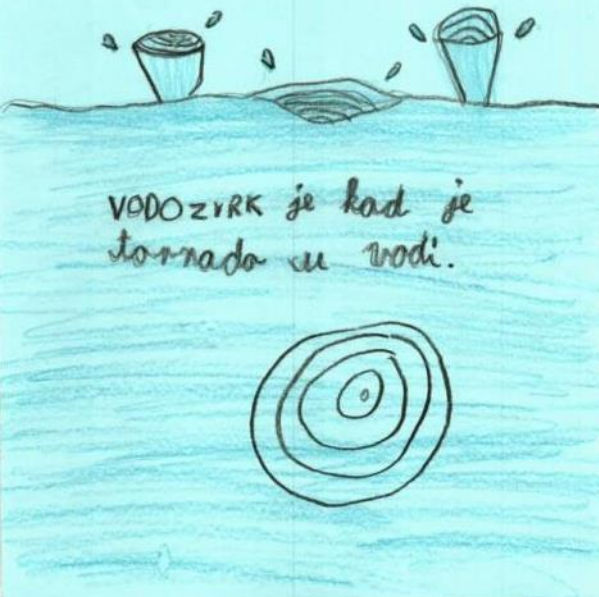 VODOZVRK je kad je
tornado u vodi.